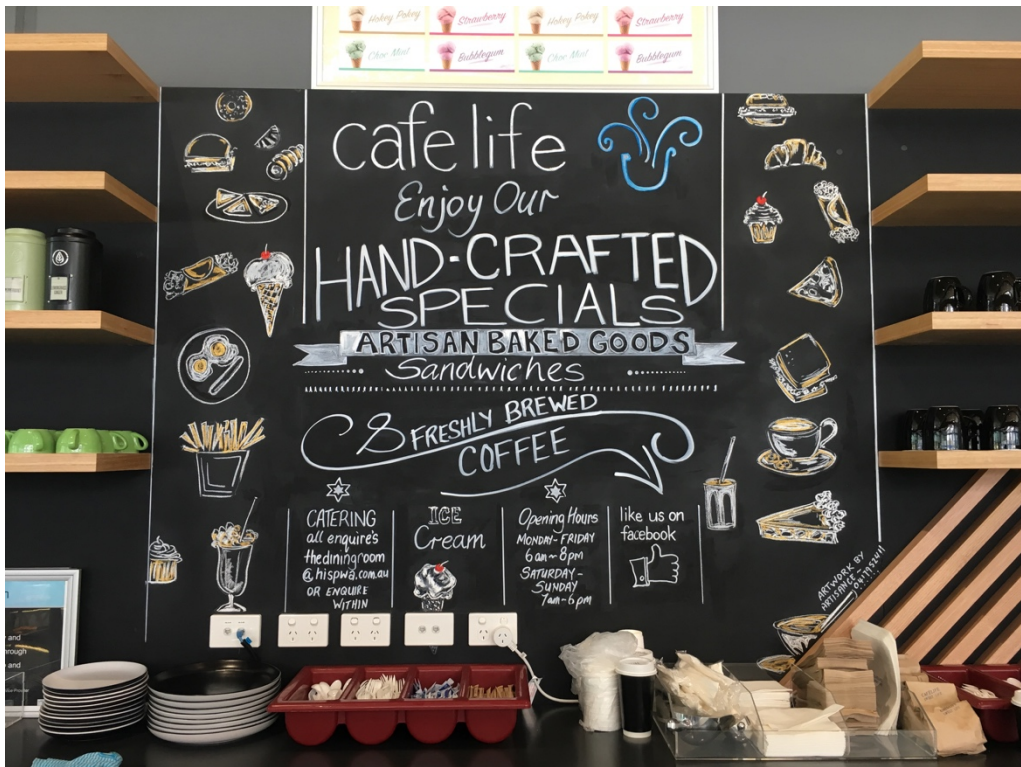 Hokey Pokey Strawberry Hokey Pokey Strawberry
Choc Mint Bubblegum Choc Mint Bubblegum
cafe life
Enjoy Our
HAND-CRAFTED
SPECIALS
ARTISAN BAKED GOODS
Sandwiches
& FRESHLY BREWED
COFFEE
CATERING
all enquire's
thediningroom
@hispwa.com.au
OR ENQUIRE
WITHIN
ICE
Cream
Opening Hours
MONDAY-FRIDAY
6am~8pm
SATURDAY-
SUNDAY
7am-6pm
like us on
facebook
ARTWORK BY
ARTISANCE
y and
through
e and